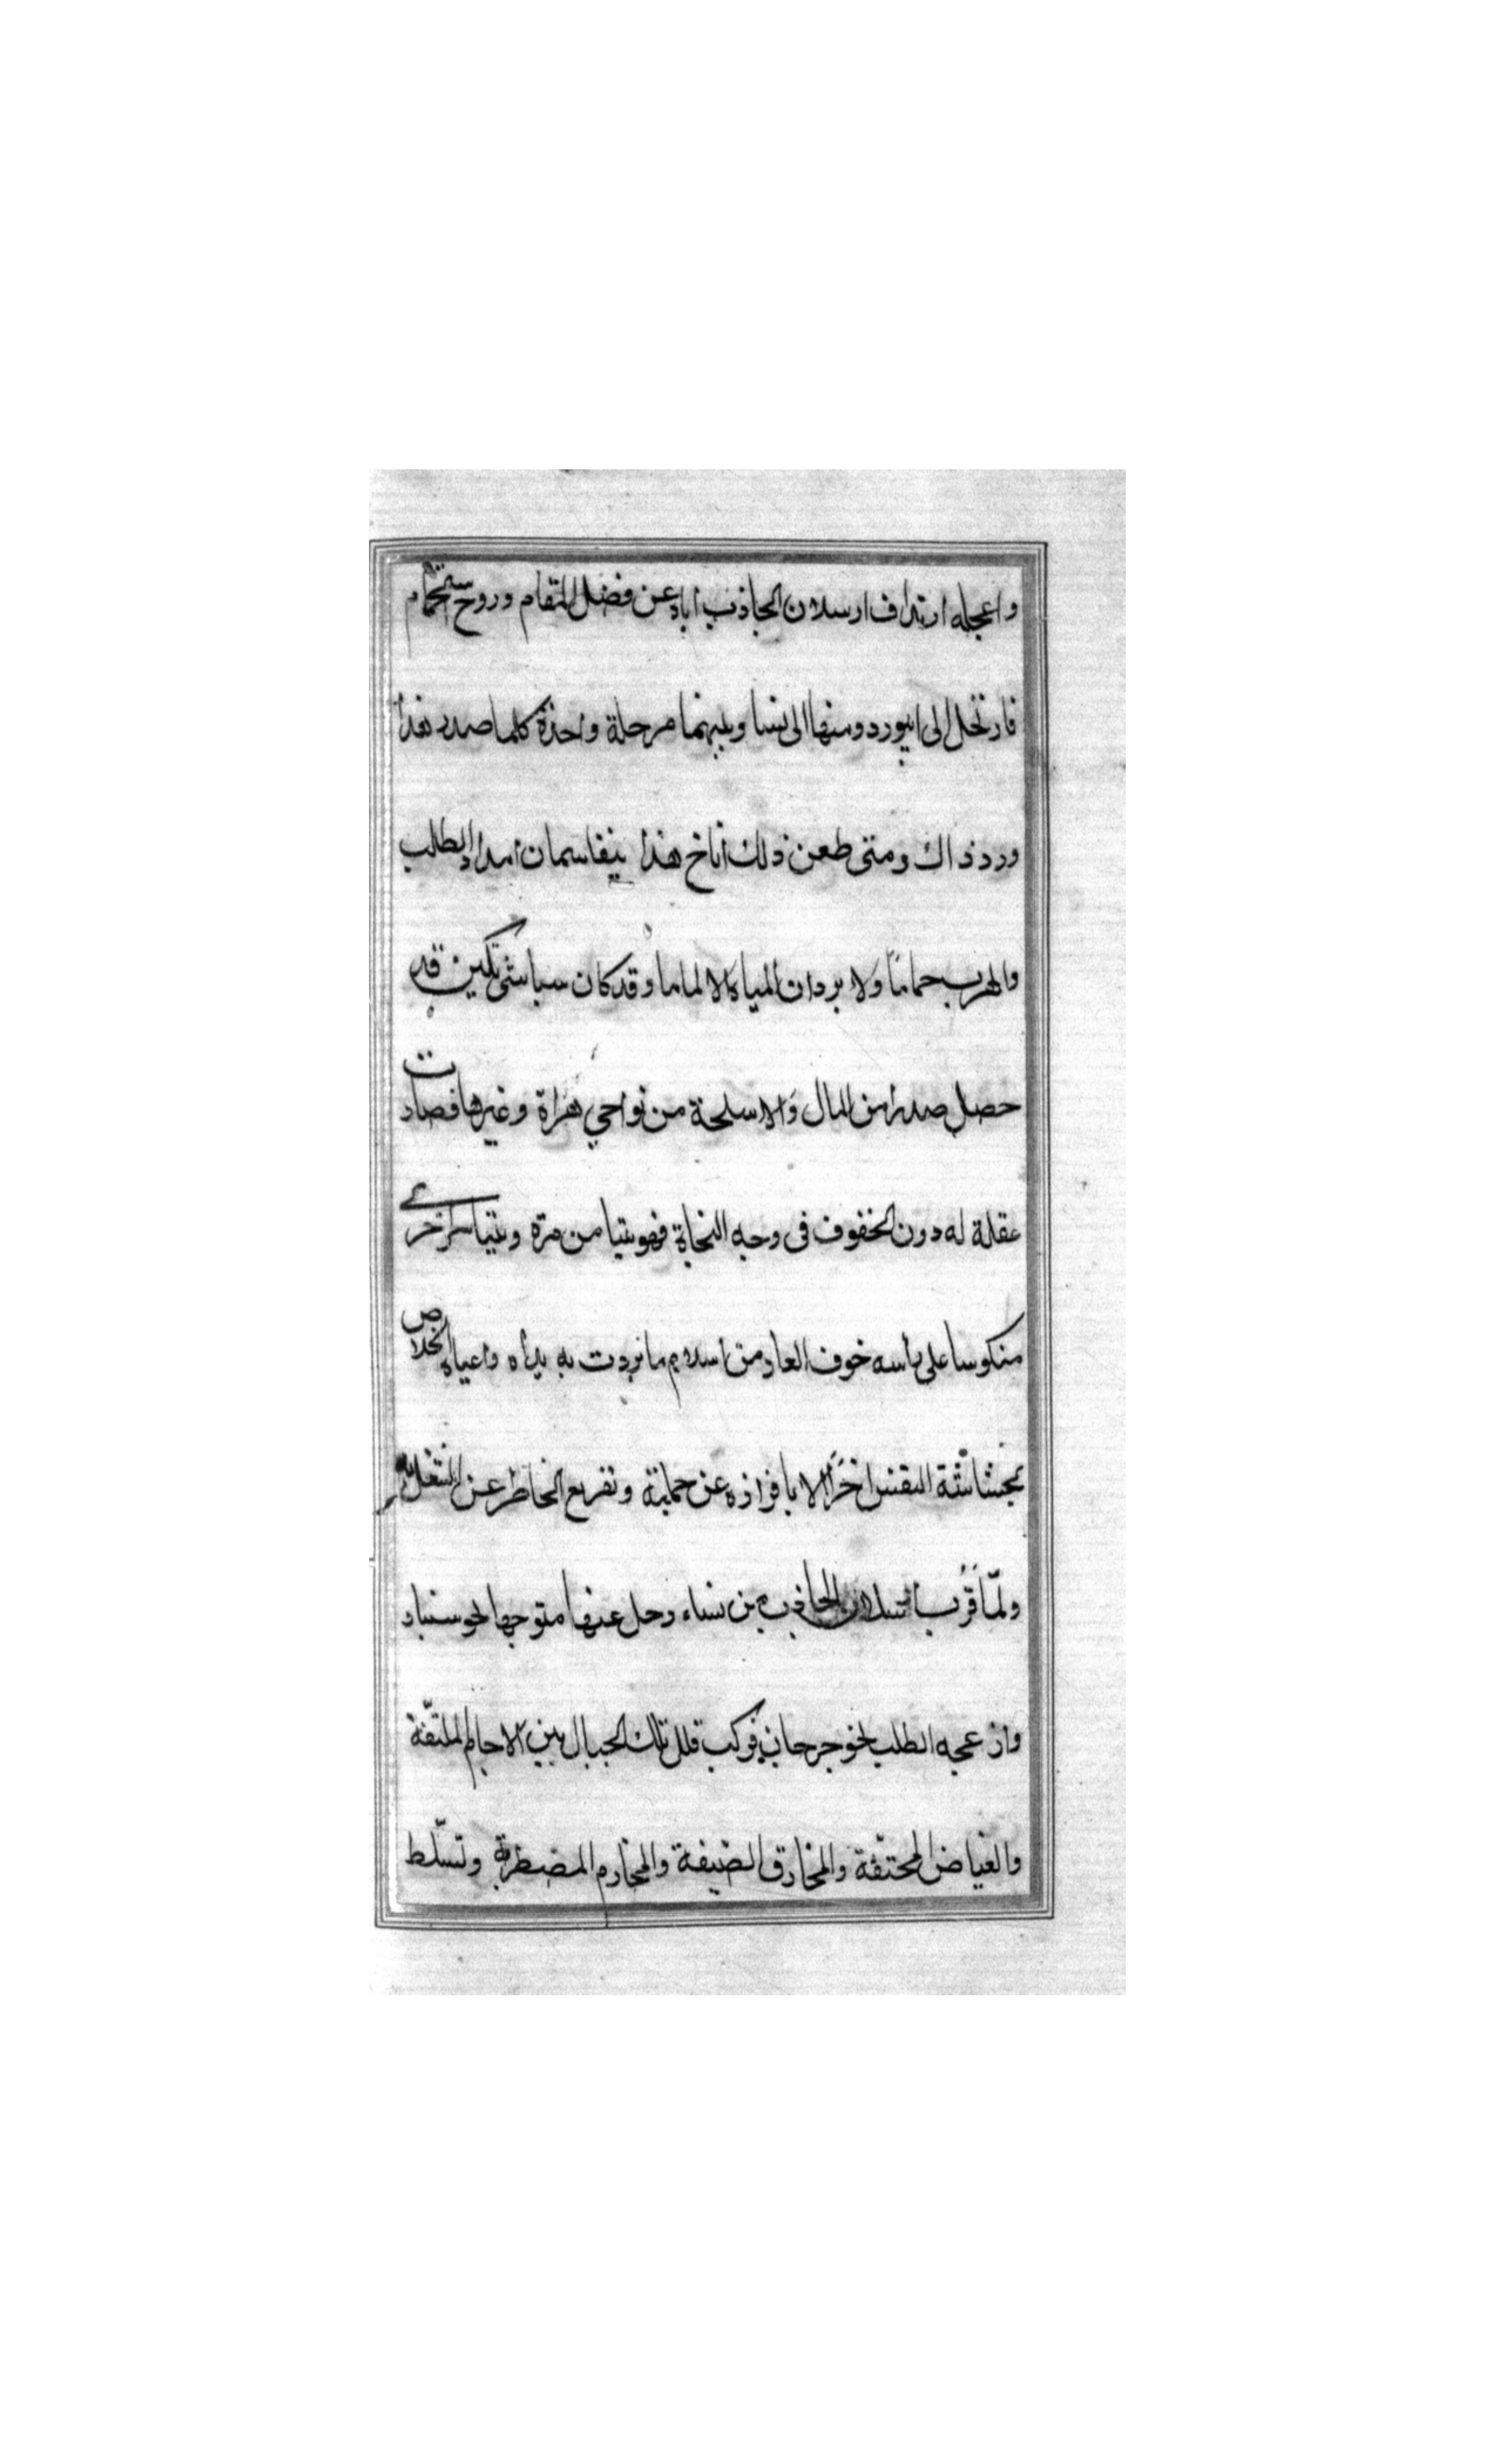 واعجله ارتداف ارسلان الجاذب اياه عن فضل المقام وروح الاستجمام
فارتحل الى ابيورد ومنها الى نسا وبينهما مرحلة واحدة كلما صدر هذا
ورد ذاك ومتى طعن ذلك اناخ هذا يتقاسمان امداد الطلب
والهرب حماما ولا يردان المياه الا لماما وقد كان سباشى تكين قد
حصل صدرا من المال والاسلحة من نواحي هراة وغيرها فصارت
عقلة له دون الخفوف فى وجه النجاة فهو يتيامن مرة ويتياسر اخرى
منكوسا على راسه خوف العار من اسلام ما بردت به يداه واعياه الخلاص
بحشاشة النفس اخرا الا بافراده عن حمايته وتفريع الخاطر عن الشغل به
ولمّا قرب ارسلان الجاذب من نساء رحل عنها متوجها نحو سنبار
وازعجه الطلب نحو جرجان فركب قلل تلك الجبال بين الاجام الملتفّة
والغياض المحتفّة والمخارق الضيقة والمخارم المضطربة وتسلّط